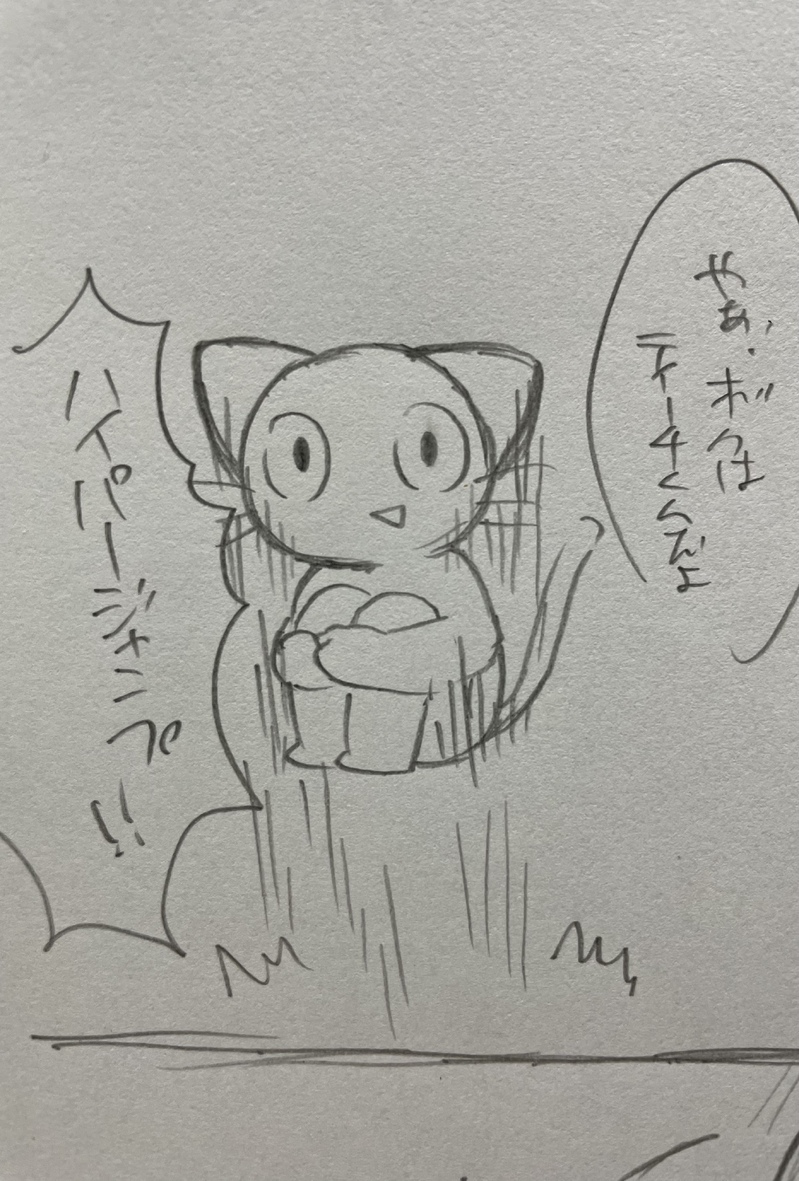 やぁ、ボクは
ティーチくんだよ
ハイパージャンプ!!